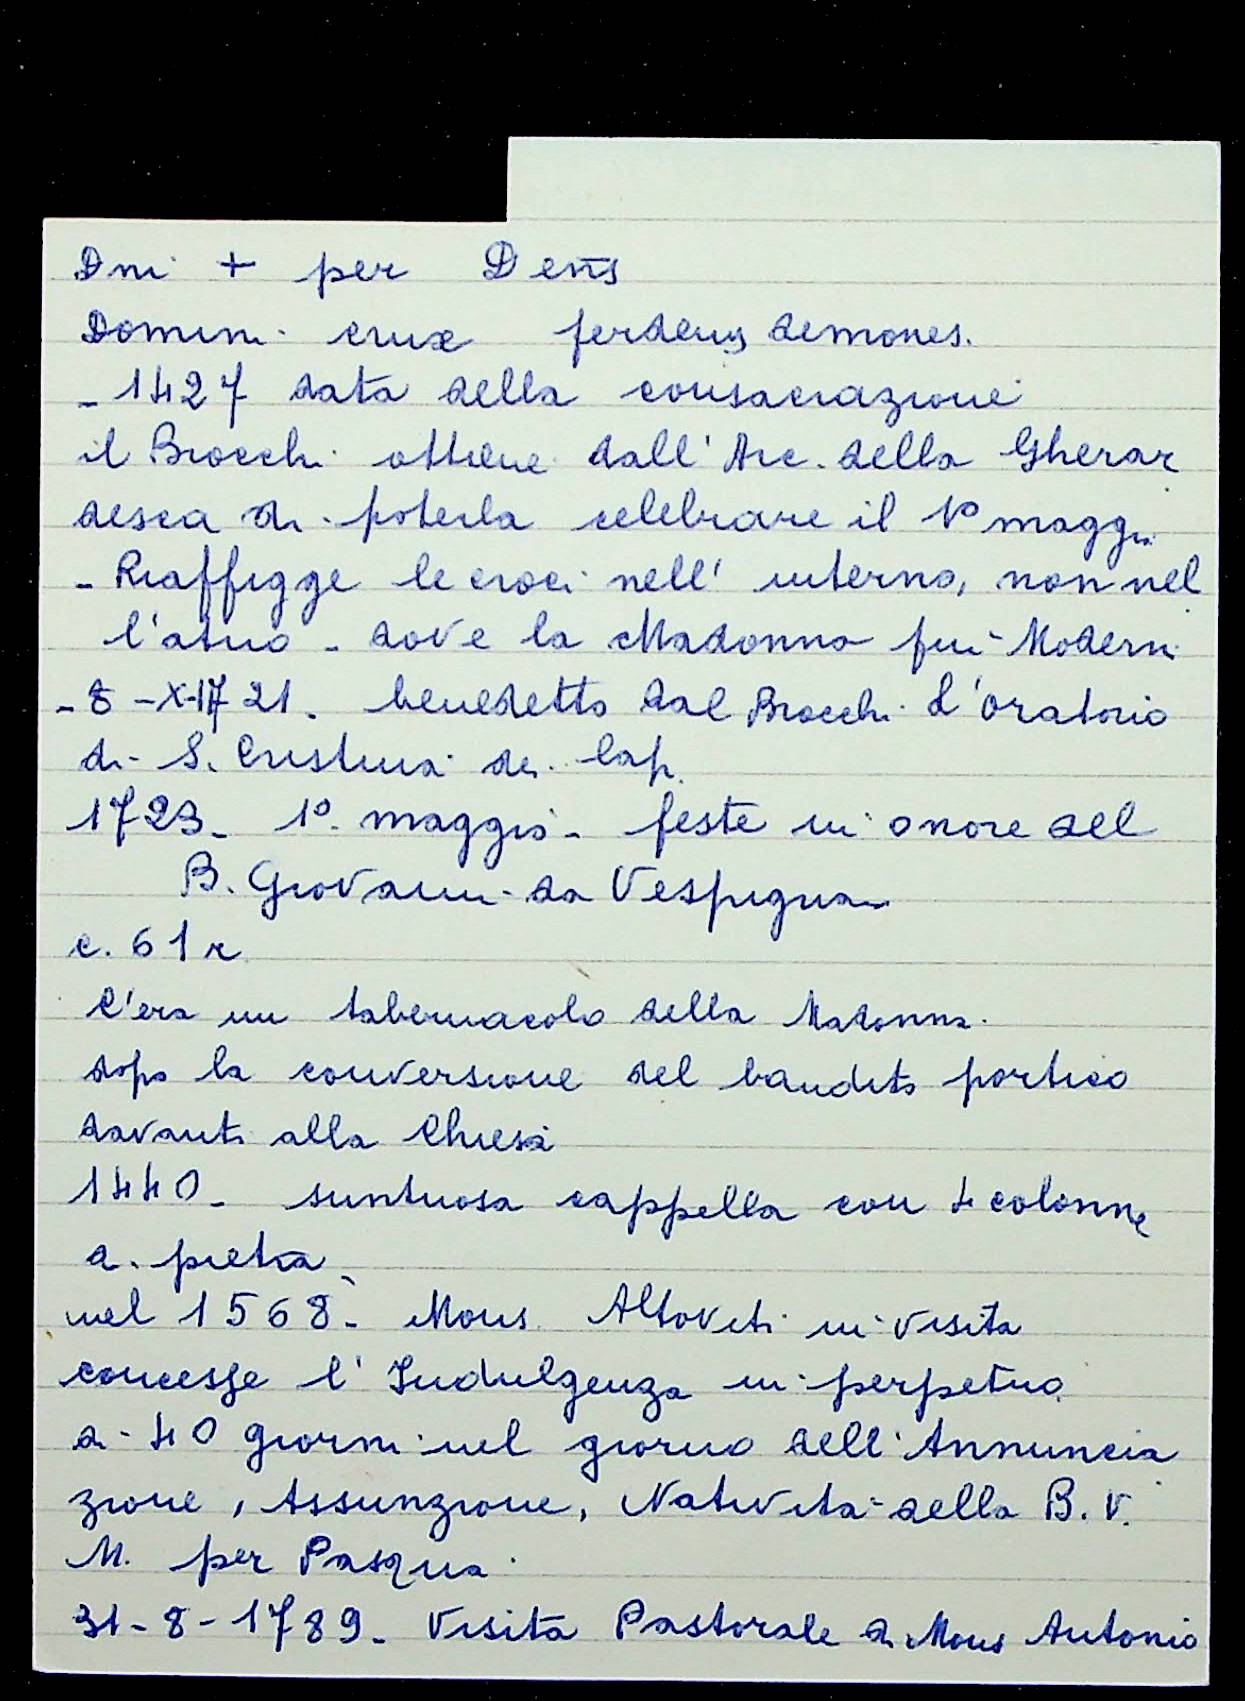 Dni + per Dens
Domini crux perdens demones.
- 1427 data della consacrazione
il Brocchi ottiene dall' Arc. della Gherar
desca di poterla celebrare il 1º maggi
- Riaffigge le croci nell' interno, non nel
l'atrio - dove la Madonna fu
- 8 - X - 1721. benedetto dal Brocchi l'oratorio
di S. Cristina di Cap.
1723 - 1º maggio - feste in onore del
B. Giovanni da Vespignan
c. 61 r
C'era un tabernacolo della Madonna.
dopo la conversione del bandito portico
davanti alla Chiesa
1440 - suntuosa cappella con 4 colonne
di pietra
nel 1568 - Mons. Altoviti in visita
concesse l' Indulgenza in perpetuo
di 40 giorni nel giorno dell' Annuncia
zione, Assunzione, Natività della B. V.
M. per Pasqua
31 - 8 - 1789 - Visita Pastorale di Mons Antonio